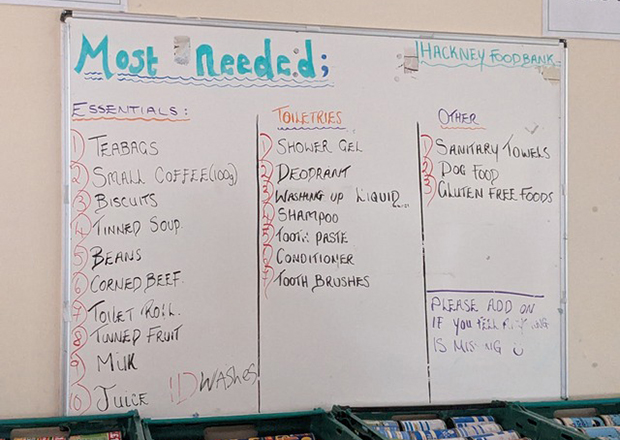 Most Needed;
HACKNEY FOODBANK
ESSENTIALS:
1 TEABAGS
2 SMALL COFFEE (100g)
3 BISCUITS
4 TINNED SOUP
5 BEANS
6 CORNED BEEF.
7 TOILET ROLL
8 TINNED FRUIT
9 MILK
10 JUICE
11) WASHES
TOILETRIES
1 SHOWER GEL
2 DEODRANT
3 WASHING UP LIQUID
4 SHAMPOO
5 TOOTH PASTE
6 CONDITIONER
7 TOOTH BRUSHES
OTHER
1 SANITARY TOWELS
2 DOG FOOD
3 GLUTEN FREE FOODS
PLEASE ADD ON
IF YOU FEEL
IS MISSING